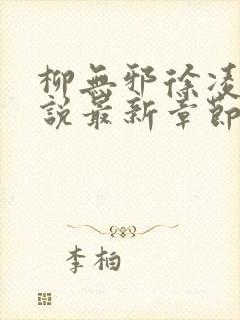 柳無邪徐凌
說最新章節
李柏